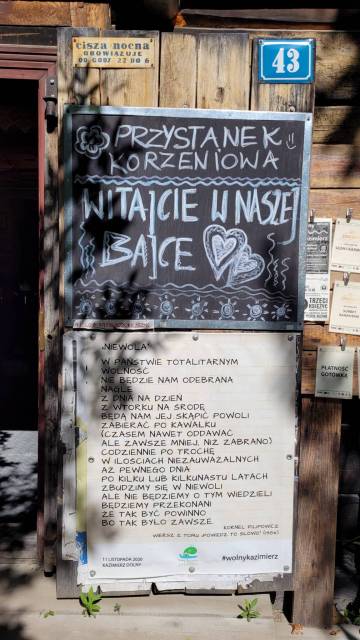 cisza nocna
OBOWIĄZUJE
OD GODZ 22 DO 6
43
PRZYSTANEK
KORZENIOWA
WITAJCIE W NASZEJ
BAJCE
„NIEWOLA"
W PAŃSTWIE TOTALITARNYM
WOLNOŚĆ
NIE BĘDZIE NAM ODEBRANA
NAGLE
Z DNIA NA DZIEŃ
Z WTORKU NA ŚRODĘ
BĘDĄ NAM JEJ SKĄPIĆ POWOLI
ZABIERAĆ PO KAWAŁKU
(CZASEM NAWET ODDAWAĆ
ALE ZAWSZE MNIEJ, NIŻ ZABRANO)
CODZIENNIE PO TROCHĘ
W ILOŚCIACH NIEZAUWAŻALNYCH
AŻ PEWNEGO DNIA
PO KILKU LUB KILKUNASTU LATACH
ZBUDZIMY SIĘ W NIEWOLI
ALE NIE BĘDZIEMY O TYM WIEDZIELI
BĘDZIEMY PRZEKONANI
ŻE TAK BYĆ POWINNO
BO TAK BYŁO ZAWSZE
KORNEL FILIPOWICZ
WIERSZ Z TOMU „POWIEDZ TO SŁOWO"
11 LISTOPADA 2020
KAZIMIERZ DOLNY
#wolnykazimierz
PŁATNOŚĆ
GOTÓWKA